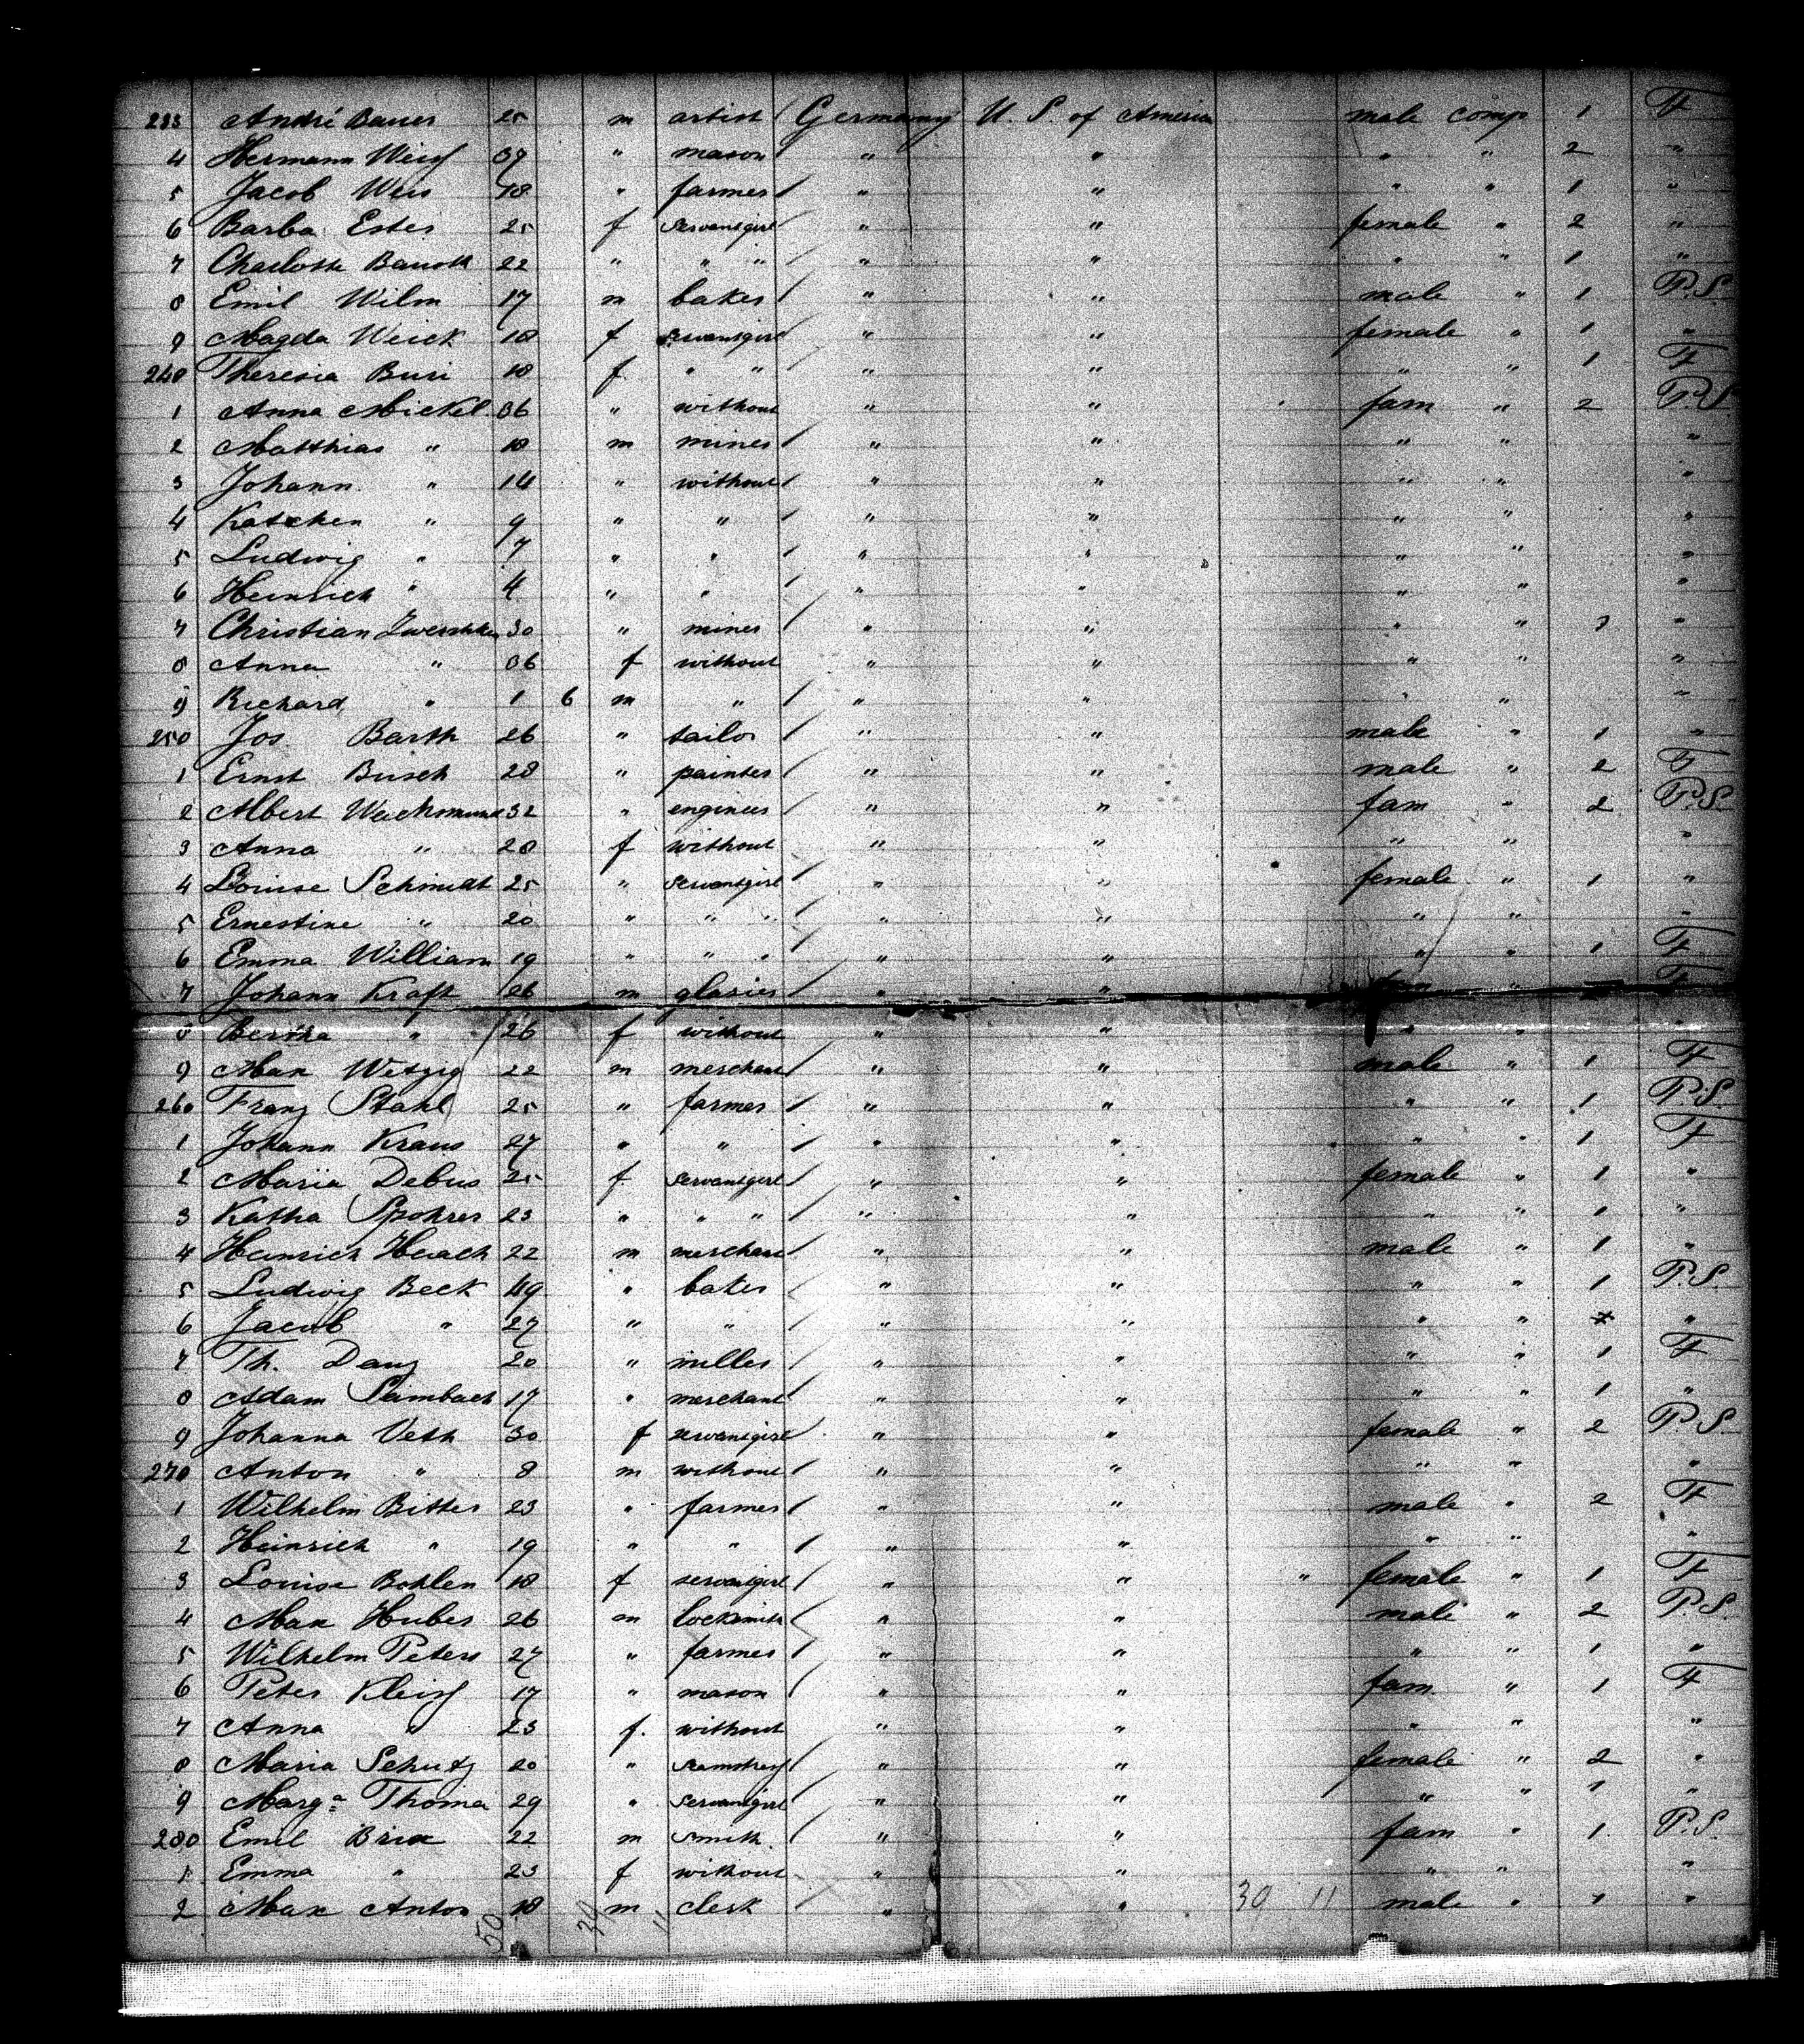 233 André Bauer 25 m artist Germany U. S. of America male comp 1 F
4 Hermann Weiss 39 " mason " " " " 2 "
5 Jacob Weis 18 " farmer " " " " 1 "
6 Barba Ester 25 f servantgirl " " female " 2 "
7 Charlotte 22 " " " " " " " 1 "
8 Emil Wilm 17 m baker " " male " 1 P.S.
9 Magda Weick 18 f servantgirl " " female " 1 "
240 Theresia Buri 18 f " " " " " " 1 F
1 Anna Mickel 36 " without " " fam " 2 P.S.
2 Matthias " 18 m miner " " " " "
3 Johann " 14 " without " " " " "
4 Katchen " 9 " " " " " " "
5 Ludwig " 7 " " " " " " "
6 Heinrich " 4 " " " " " " "
7 Christian 30 " miner " " " " "
8 Anna " 36 f without " " " " "
9 Richard " 1 6 m " " " " " "
250 Jos Barth 26 " tailor " " male " 1 "
1 Ernst Busch 28 " painter " " male " 2 F
2 Albert Wachsmund 32 " engineer " " fam " 2 P.S.
3 Anna " 28 f without " " " " "
4 Louise Schmidt 25 " servantgirl " " female " 1 "
5 Ernestine " 20 " " " " " " " "
6 Emma William 19 " " " " " " " 1 F
7 Johann Kraft 26 m glasier " " "
8 Bertha " 26 f without " " " " "
9 Max Wetzig 22 m merchant " " male " 1 F
260 Franz Stahl 25 " farmer " " " " 1 P.S.
1 Johann Kraus 27 " " " " " " 1 F
2 Maria Debus 25 f servantgirl " " female " 1 "
3 Katha Spohrer 23 " " " " " " " 1 "
4 Heinrich 22 m merchant " " male " 1 "
5 Ludwig Beck 49 " baker " " " " 1 P.S.
6 Jacob " 27 " " " " " " "
7 Th. Danz 20 " miller " " " " 1 F
8 Adam 17 " merchant " " " " 1 "
9 Johanna Veth 30 f servantgirl " " female " 2 P.S.
270 Anton " 8 m without " " " " "
1 Wilhelm Bitter 23 " farmer " " male " 2 F
2 Heinrich " 19 " " " " " " "
3 Louise Bohlen 18 f servantgirl " " " female " 1 F
4 Max Huber 26 m locksmith " " male " 2 P.S.
5 Wilhelm Peters 27 " farmer " " " " 1 "
6 Peter Kleiss 17 " mason " " fam " 1 F
7 Anna " 23 f. without " " " " "
8 Maria Schutz 20 " seamstress " " female " 2 "
9 Marga Thoma 29 " servantgirl " " " " 1 "
280 Emil Brix 22 m smith " " fam " 1 P.S.
1 Emma " 23 f without " " " " "
2 Max Anton 18 m clerk " " 39 11 male " 1 "
50 39 11